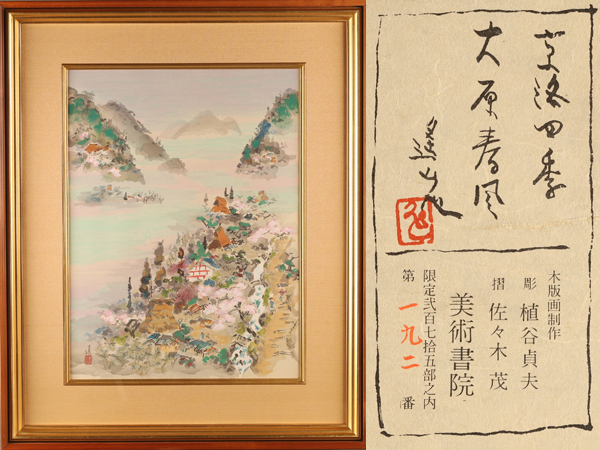 京洛四季
大原春風
木版画制作
彫 植谷貞夫
摺 佐々木茂
美術書院
限定弐百七拾五部之内
第 一九二 番